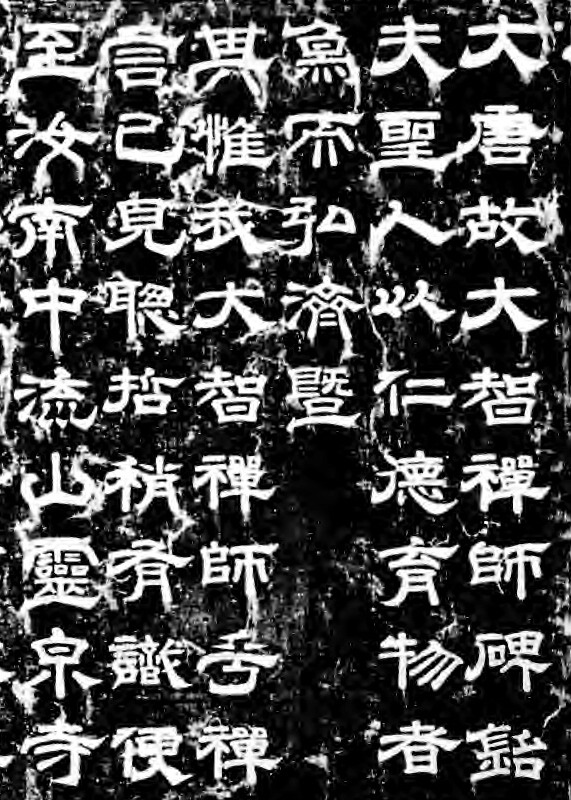 大唐故大智禪師碑銘
夫聖人以仁德育物者
為而弘濟暨
其惟我大智禪師舌禪
言已皃聰哲稍有識便
至汝南中流山靈泉寺